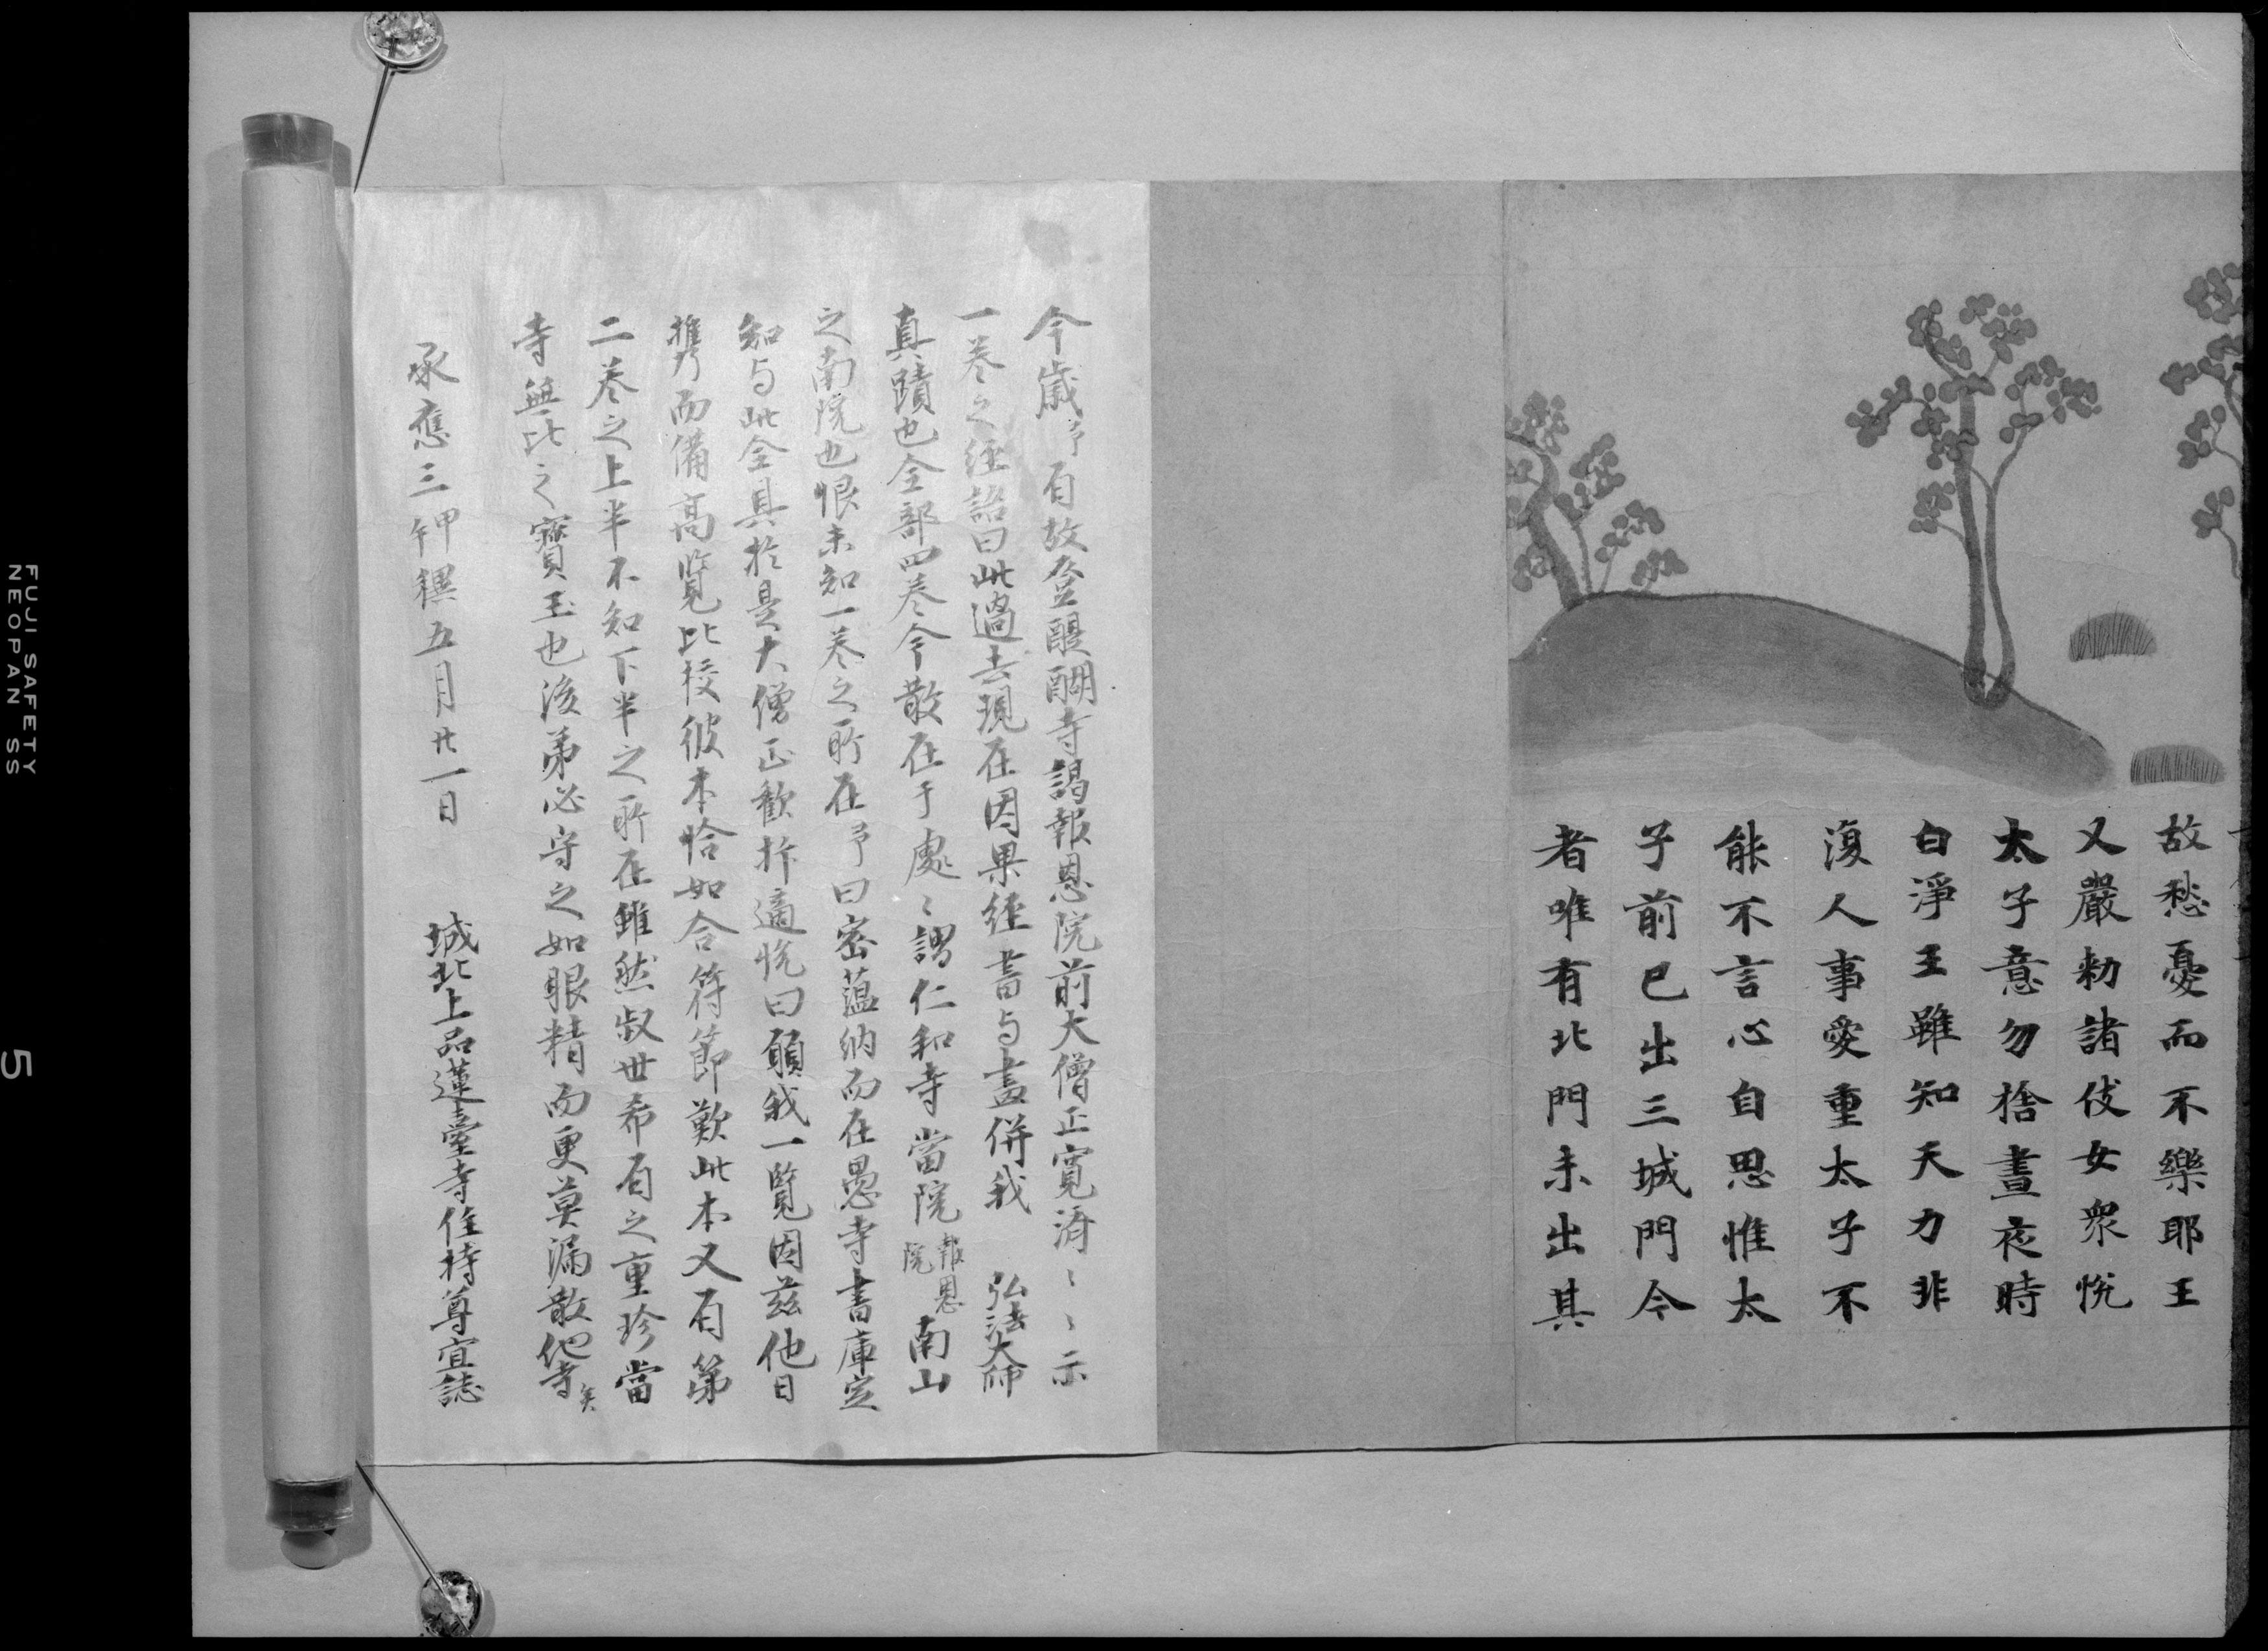 故愁憂而不樂耶王
又嚴勑諸伎女衆悅
太子意勿捨晝夜時
白淨王雖知天力非
復人事愛重太子不
能不言心自思惟太
子前已出三城門今
者唯有北門未出其
今歲予有故登醍醐寺謁報恩院前大僧正寛済〻〻示
一巻之経詔曰此過去現在因果経書与畫併我　弘法大師
真蹟也全部四巻今散在于處〻謂仁和寺當院報恩院南山
之南院也恨未知一巻之所在予曰密蕴納而在愚寺書庫定
知与此全具於是大僧正歡抃適悦曰願我一覧因茲他日
携而備高覧比校彼本恰如合符節歎此本又有第
二巻之上半不知下半之所在雖然叔世希有之重珍當
寺無比之寶玉也後弟必守之如眼精而更莫漏散他寺矣
承應三甲午穓五月廿一日　城北上品蓮臺寺住持尊宜誌
FUJI SAFETY
NEOPAN SS
5